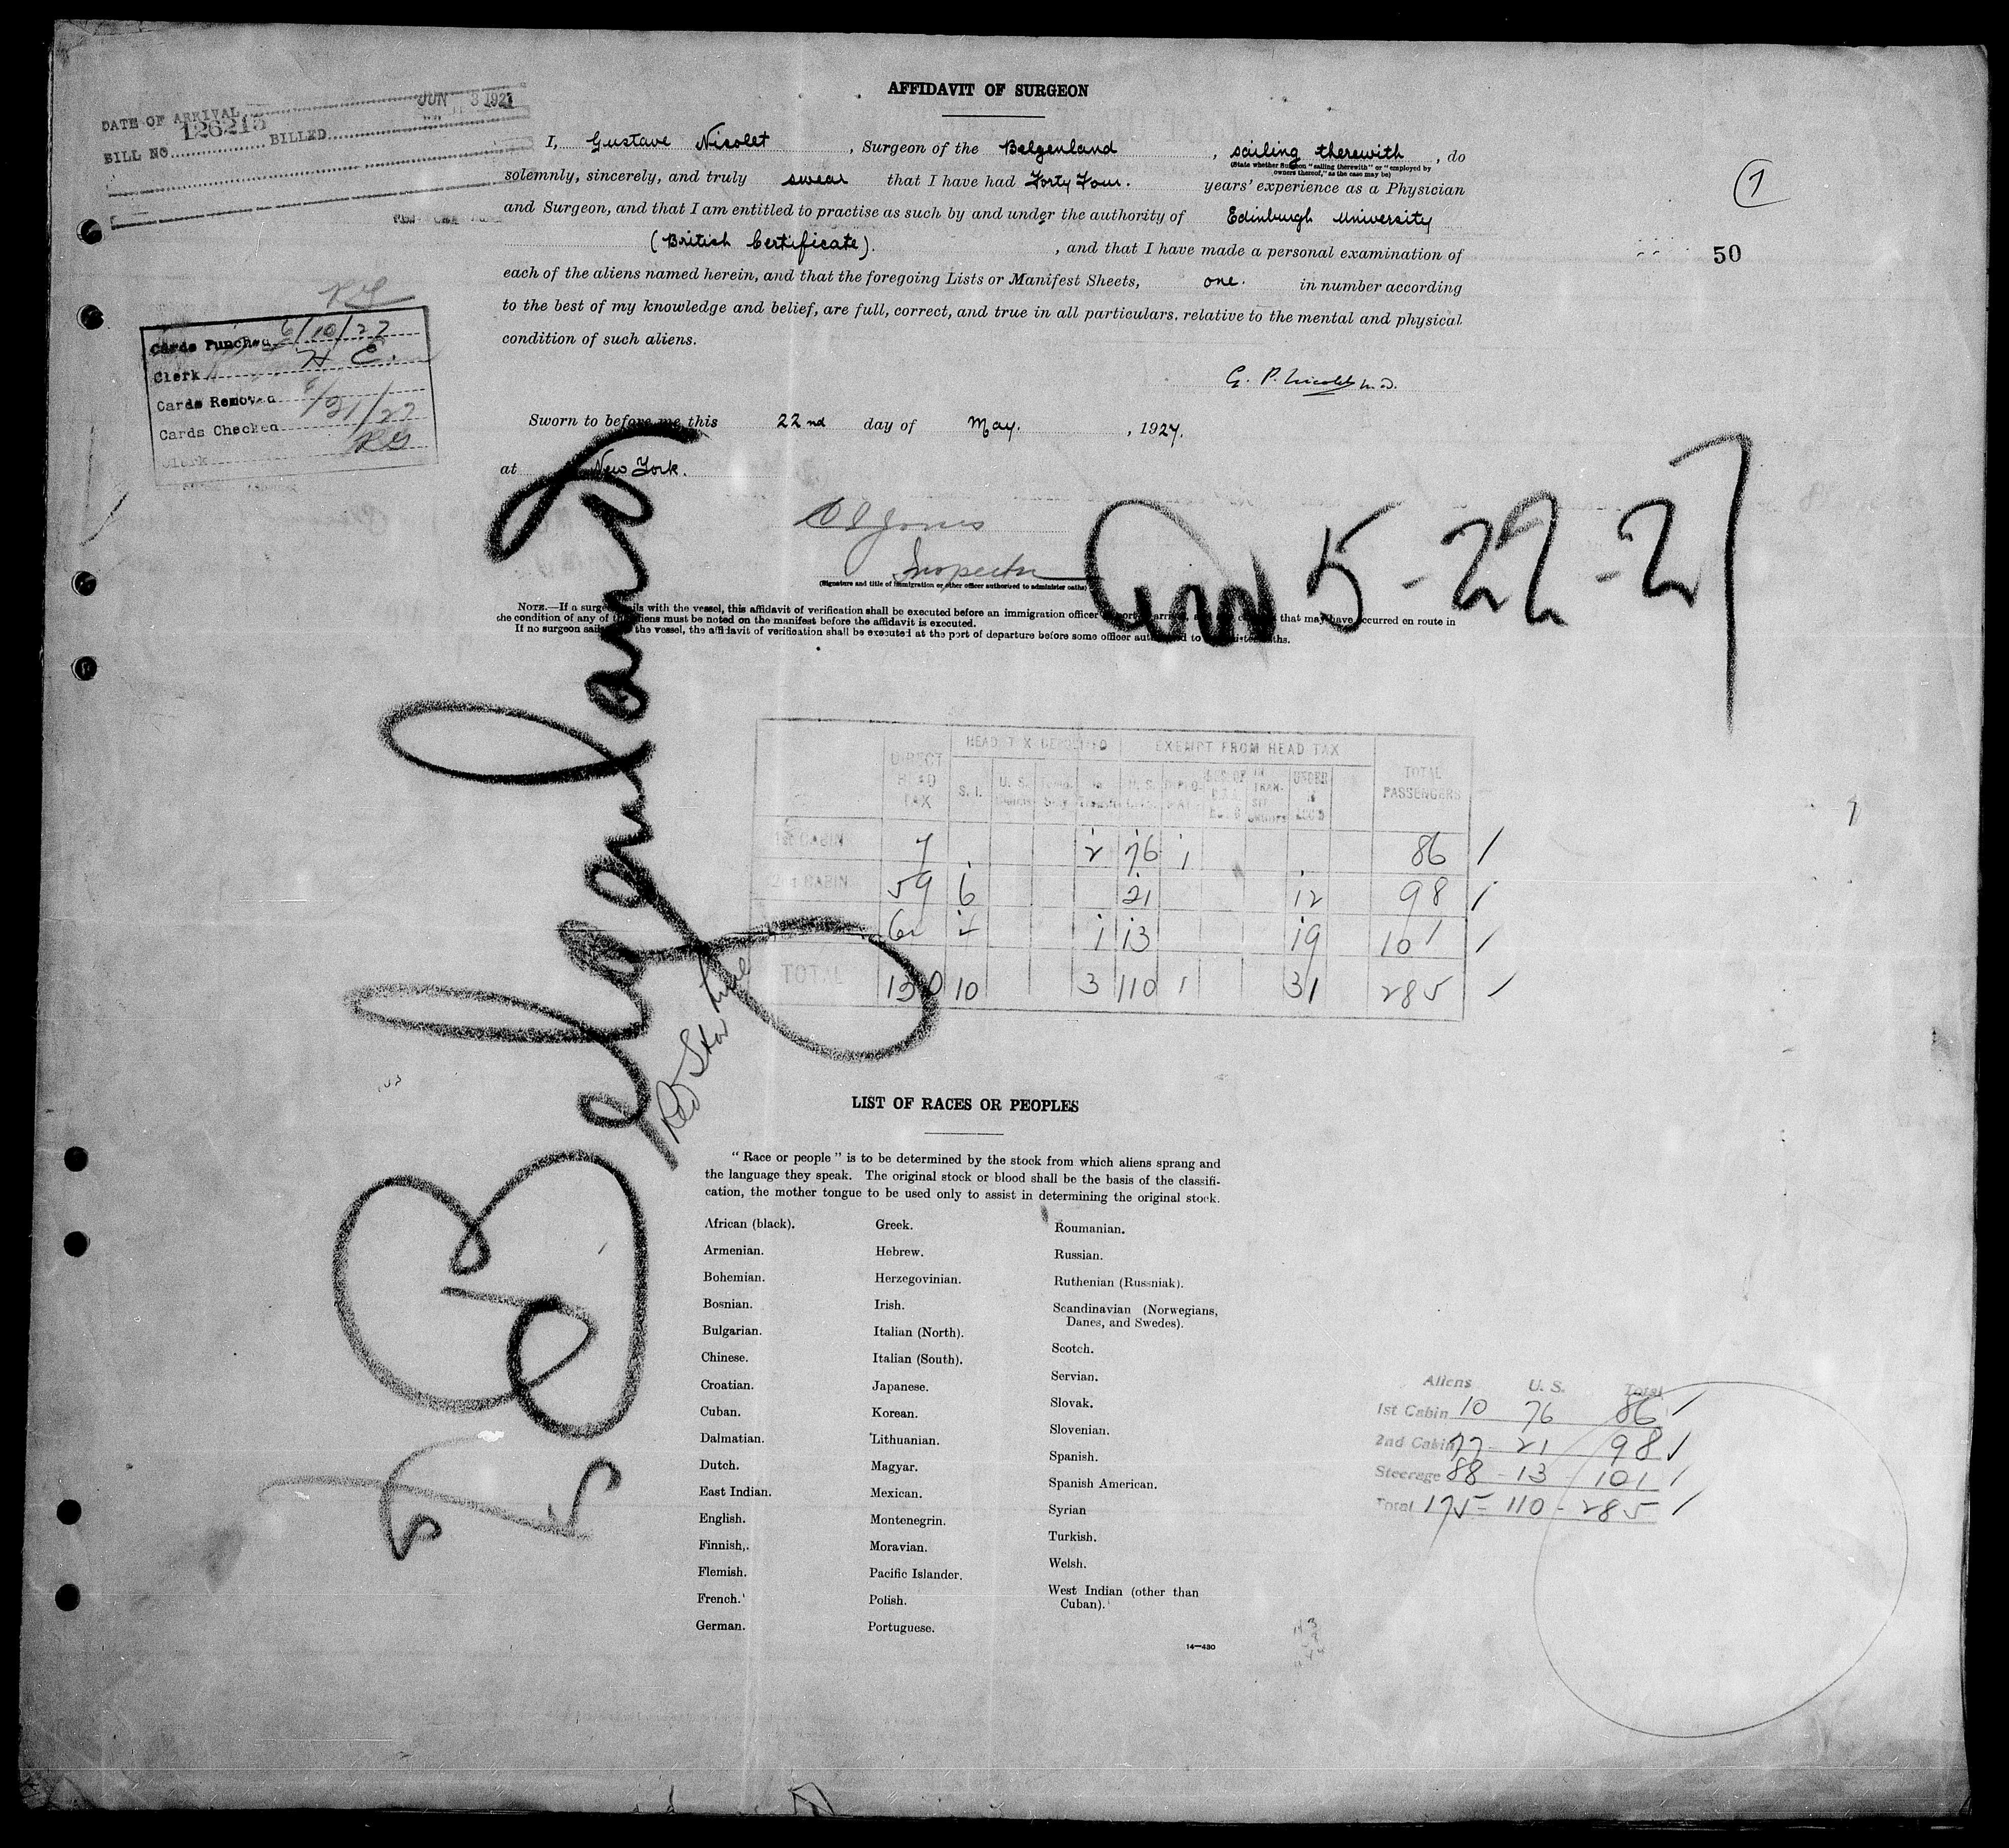 AFFIDAVIT OF SURGEON
DATE OF ARRIVAL JUN 3 1927
BILL NO. 126215 BILLED
I, Gustave Nicolet, Surgeon of the Belgenland, sailing therewith, do
(State whether Surgeon "sailing therewith" or "employed by owners thereof," as the case may be)
solemnly, sincerely, and truly swear that I have had Forty Four. years' experience as a Physician
and Surgeon, and that I am entitled to practise as such by and under the authority of Edinburgh University
(British Certificate)., and that I have made a personal examination of
each of the aliens named herein, and that the foregoing Lists or Manifest Sheets, one. in number according
to the best of my knowledge and belief, are full, correct, and true in all particulars, relative to the mental and physical
condition of such aliens.
1
50
Cards Punched 6/10/27
Clerk H C.
Cards Removed
Cards Checked 6/21/27
Clerk RG
Sworn to before me this 22nd day of May., 1927.
at New York.
Jones
Inspector
(Signature and title of immigration or other officer authorized to administer oaths)
5-22-27
NOTE.—If a surgeon sails with the vessel, this affidavit of verification shall be executed before an immigration officer
the condition of any of the aliens must be noted on the manifest before the affidavit is executed.
If no surgeon sails the vessel, the affidavit of verification shall be executed at the port of departure before some officer
Belgenland
Red Star Line
DIRECT HEAD TAX HEAD TAX DEPOSITED EXEMPT FROM HEAD TAX TOTAL PASSENGERS
S. I. U. S. UNDER 16
1st CABIN 7 2 76 1 86
2nd CABIN 59 6 21 12 98
1 13 19 101
TOTAL 130 10 3 110 1 31 285
LIST OF RACES OR PEOPLES
"Race or people" is to be determined by the stock from which aliens sprang and
the language they speak. The original stock or blood shall be the basis of the classifi-
cation, the mother tongue to be used only to assist in determining the original stock.
African (black).
Armenian.
Bohemian.
Bosnian.
Bulgarian.
Chinese.
Croatian.
Cuban.
Dalmatian.
Dutch.
East Indian.
English.
Finnish.
Flemish.
French.
German.
Greek.
Hebrew.
Herzegovinian.
Irish.
Italian (North).
Italian (South).
Japanese.
Korean.
Lithuanian.
Magyar.
Mexican.
Montenegrin.
Moravian.
Pacific Islander.
Polish.
Portuguese.
Roumanian.
Russian.
Ruthenian (Russniak).
Scandinavian (Norwegians,
Danes, and Swedes).
Scotch.
Servian.
Slovak.
Slovenian.
Spanish.
Spanish American.
Syrian
Turkish.
Welsh.
West Indian (other than
Cuban).
14—430
Aliens U. S. Total
1st Cabin 10 76 86
2nd Cabin 77 - 21 98
Steerage 88 - 13 - 101
Total 175 - 110 - 285